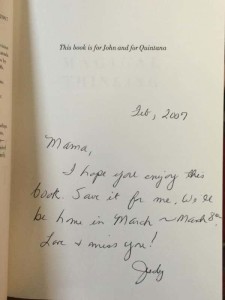 This book is for John and for Quintana
Feb, 2007
Mama,
I hope you enjoy this
book. Save it for me. We'll
be home in March ~ March 8th.
Love & miss you!
Judy